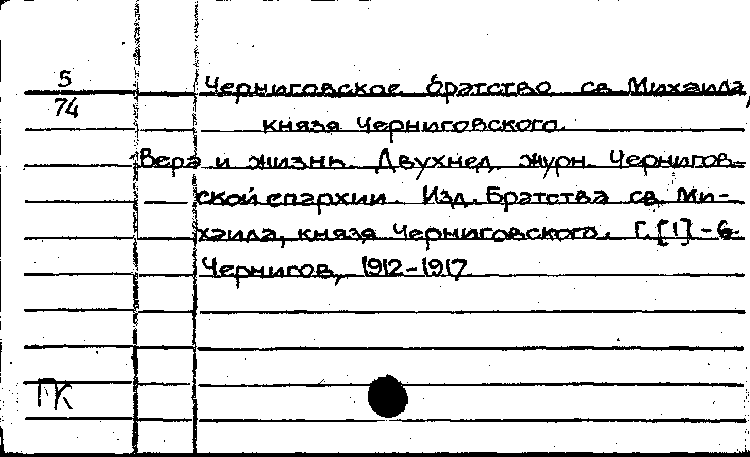 5
74
Черниговское братство св Михаила,
князя Черниговского.
Вера и жизнь. Двухнед. журн. Чернигов-
ской епархии. Изд. Братства св. Ми-
хаила, князя Черниговского. Г. [1]-6.
Чернигов, 1912-1917
ПК